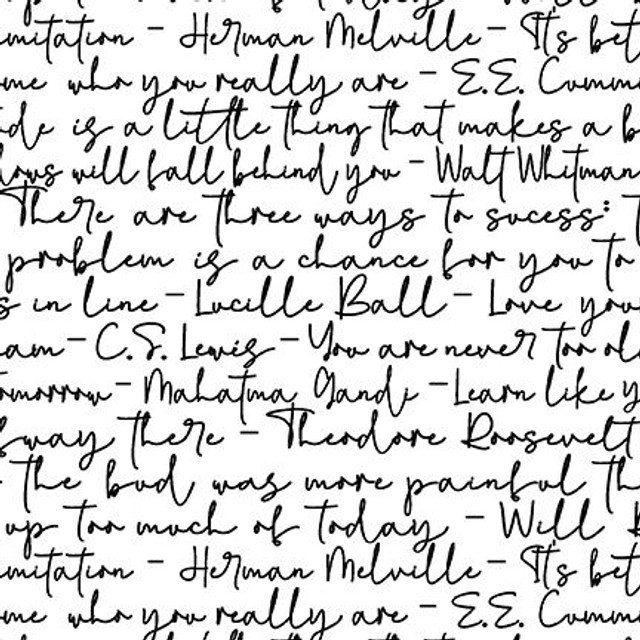 imitation - Herman Melville - It's bet
ome who you really are - E.E. Cummi
ude is a little thing that makes a b
dows will fall behind you - Walt Whitman
There are three ways to sucess: T
problem is a chance for you to
s in line - Lucille Ball - Love you
am - C.S. Lewis - You are never too ol
omorrow - Mahatma Gandi - Learn like y
fway there - Theodore Roosevelt
the bud was more painful th
up too much of today - Will R
imitation - Herman Melville - It's bet
ome who you really are - E.E. Cummi